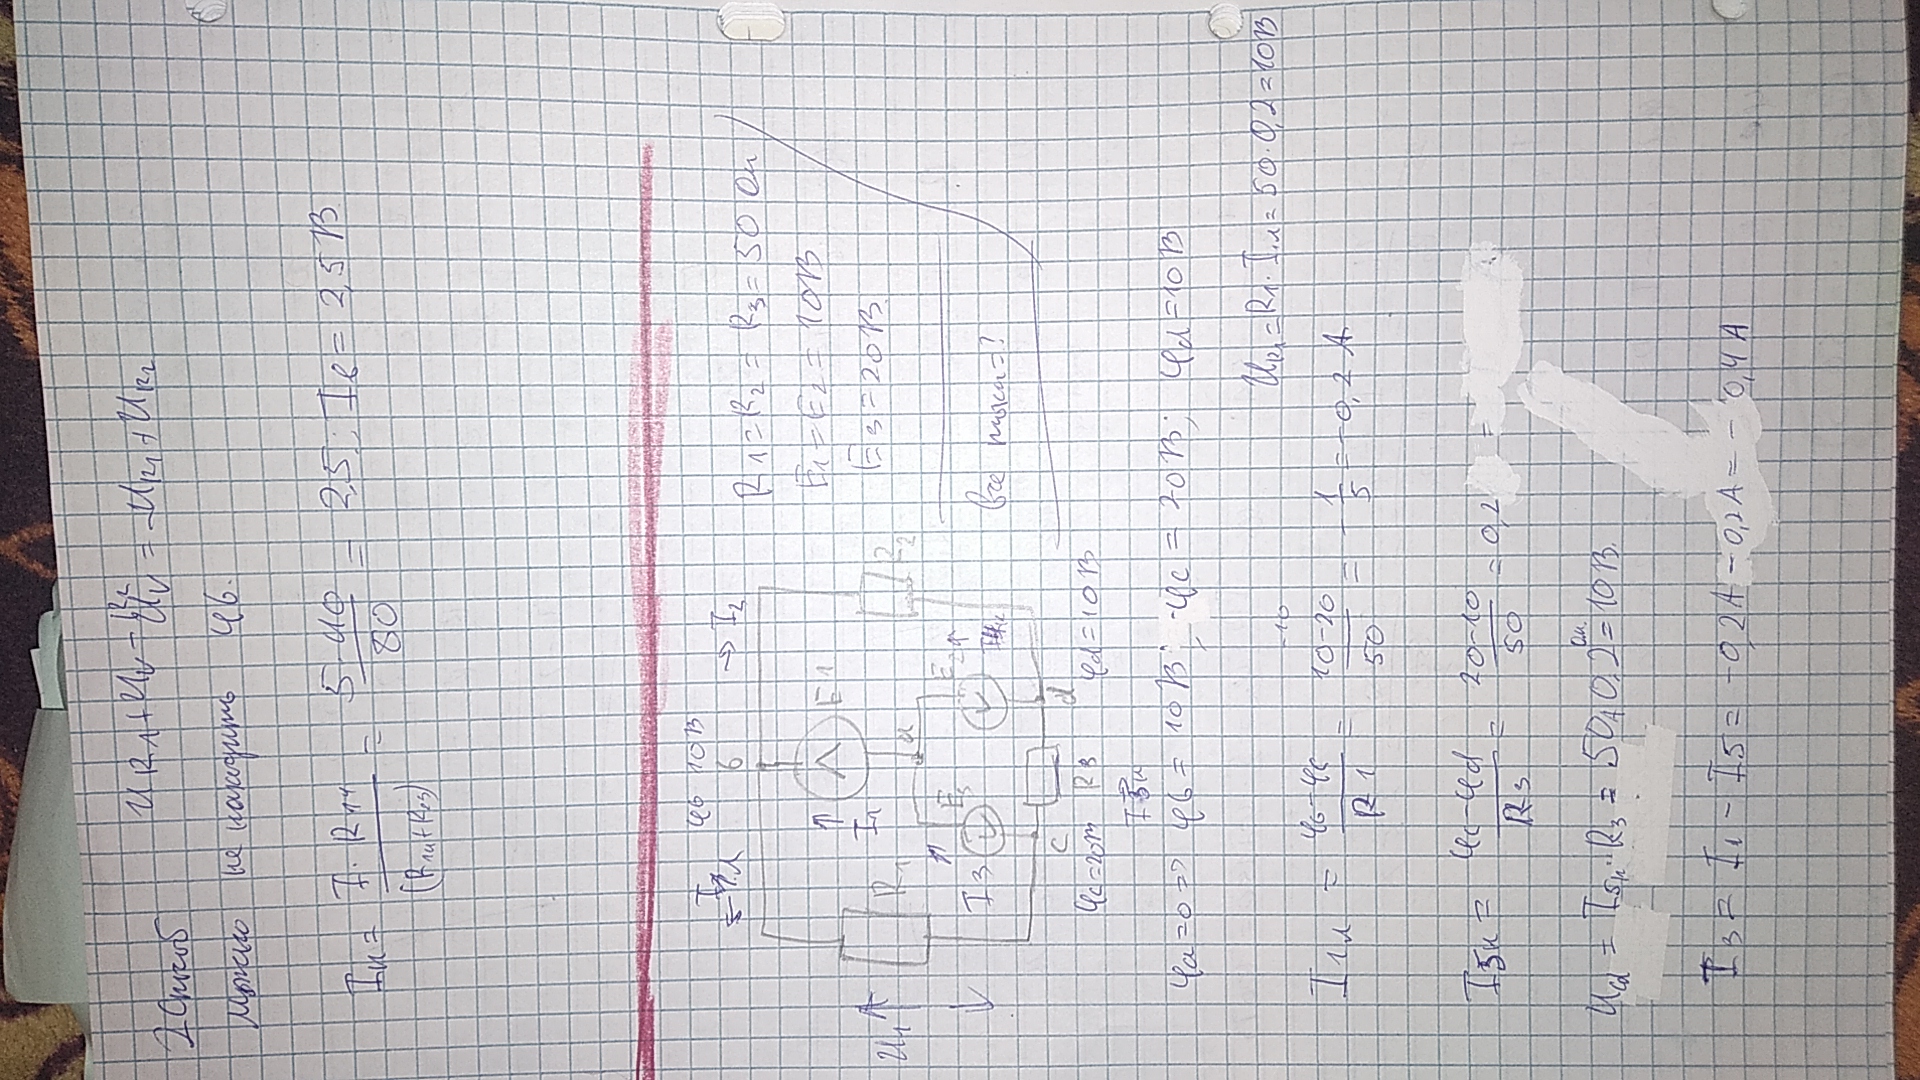 U R1 + UV =
UV = -UR1 + UR2
2 Способ
Можно не находить φб.
Iи = I · R14 / (R14 + R23) = 5·40 / 80 = 2,5 ; Iв = 2,5 В
φб 10В
б
→ I2
E1
I1
U1
R1
a
R2
I3
E3
E2
c
d
φc=20В
R3
φd=10В
R1 = R2 = R3 = 50 Ом
E1 = E2 = 10В
E3 = 20В
Все токи = ?
φa=0 => φб = 10В; φc = 20В; φd=10В
UR1 = R1 · I1л = 50·0,2=10В
-10
I1л = φб-φc / R1 = 10-20 / 50 = -1/5 = -0,2 А
I5и = φc-φd / R3 = 20-10 / 50 = 0,2 =
Ucd = I5и · R3 = 50 · 0,2 = 10В.
I3 = I1 - I5 = -0,2А - 0,2А = - 0,4 А